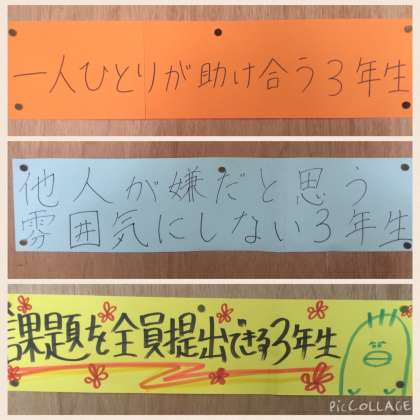 一人ひとりが助け合う3年生
他人が嫌だと思う
雰囲気にしない3年生
課題を全員提出できる3年生
PicCOLLAGE